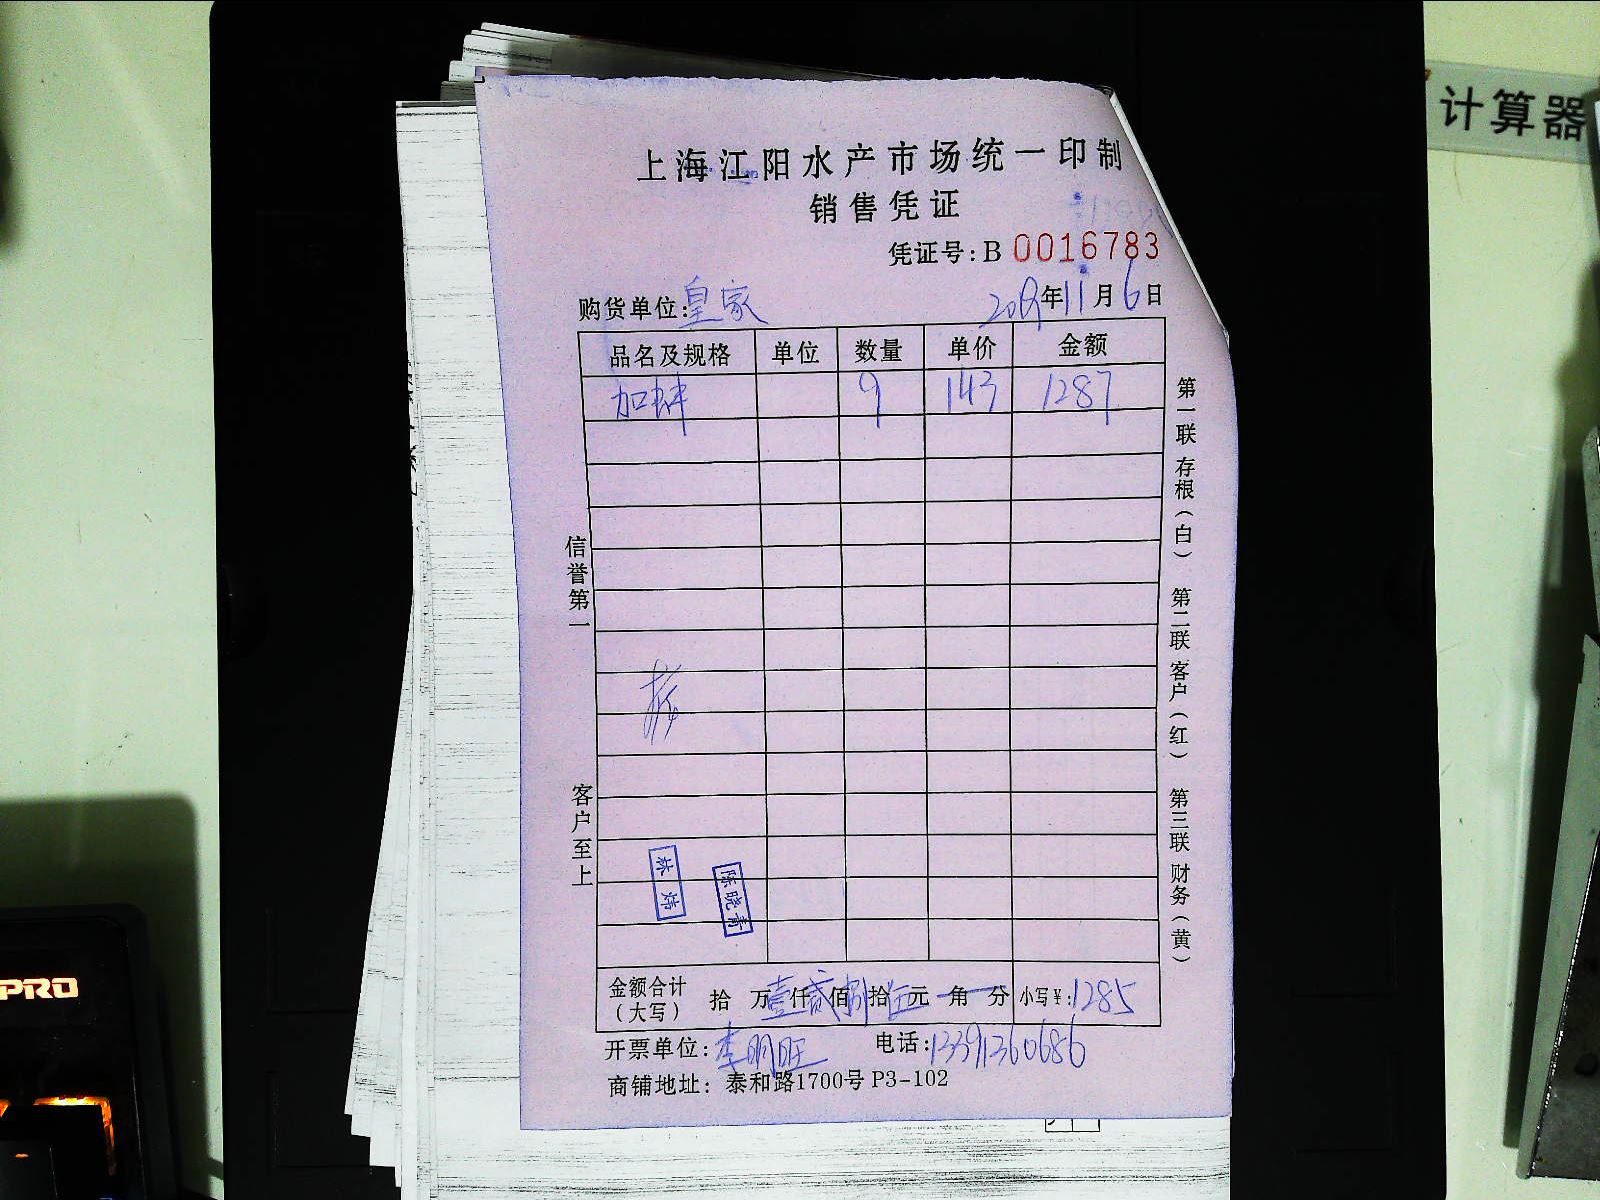 计算器
上海江阳水产市场统一印制
销售凭证
凭证号:B 0016783
购货单位:皇家 2019年11月6日
品名及规格 单位 数量 单价 金额
加蚌 9 143 1287
信誉第一
客户至上
林炜
陈晓青
金额合计(大写) 拾 万壹仟贰佰捌拾伍元 角 分 小写¥:1285
开票单位:李明旺 电话:13391360686
商铺地址: 泰和路1700号 P3-102
第一联 存根(白) 第二联 客户(红) 第三联 财务(黄)
PRO